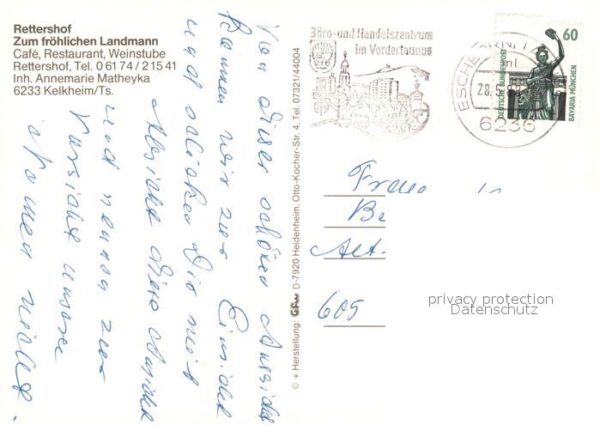 Rettershof
Zum fröhlichen Landmann
Café, Restaurant, Weinstube
Rettershof, Tel. 0 61 74 / 215 41
Inh. Annemarie Matheyka
6233 Kelkheim/Ts.
Büro- und Handelszentrum
im Vordertaunus
ESCHBORN 1
28.
6236
60
DEUTSCHE BUNDESPOST
BAVARIA MÜNCHEN
© + Herstellung: D-7920 Heidenheim, Otto-Kocher-Str. 4, Tel. 07321/44004
Von dieser schönen Aussicht
kamen wir zur Einsicht
und schicken Dir mit
Absicht diese Ansicht
und nennen zur
unsere
Namen nicht.
Frau
Be
Alt-
605
privacy protection
Datenschutz